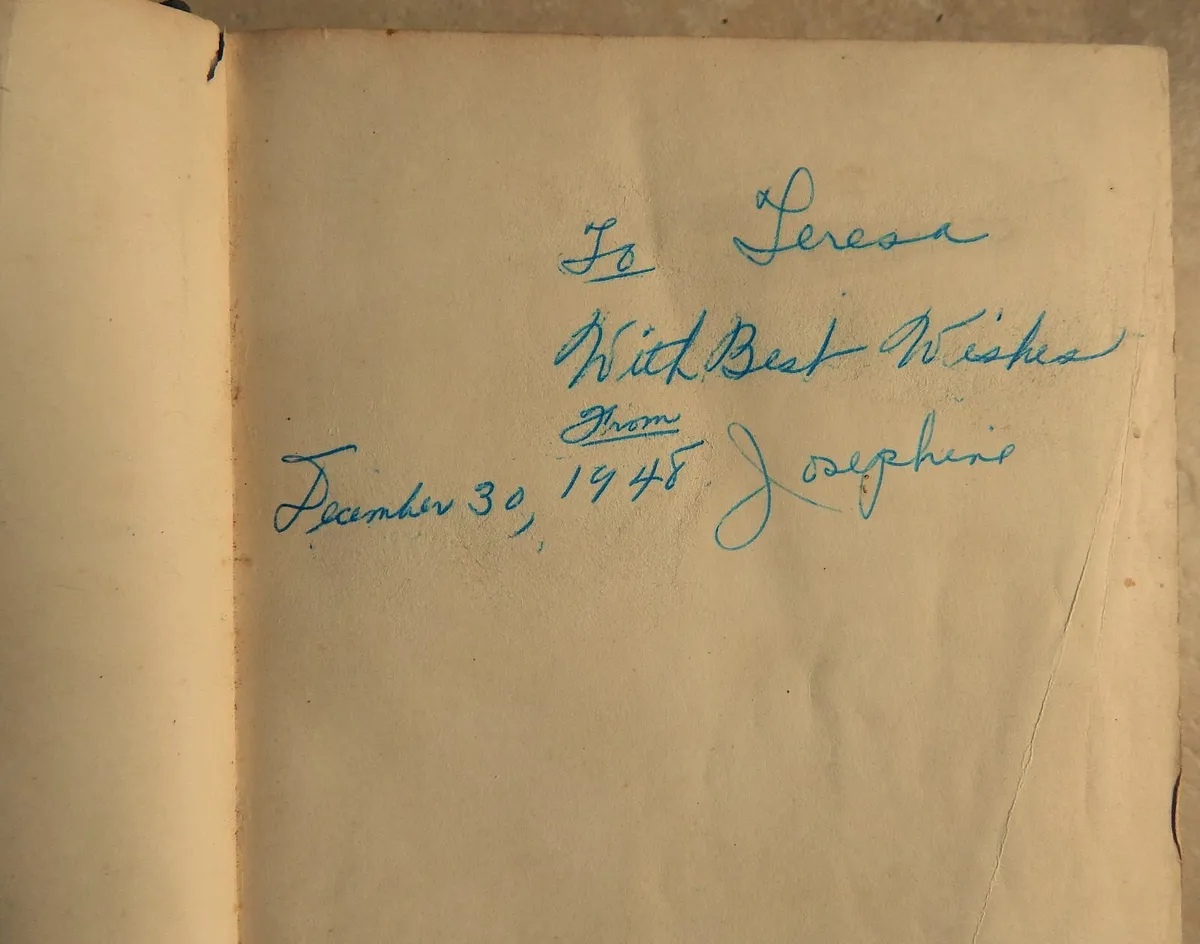 To Teresa
With Best Wishes
From
Josephine
December 30, 1948